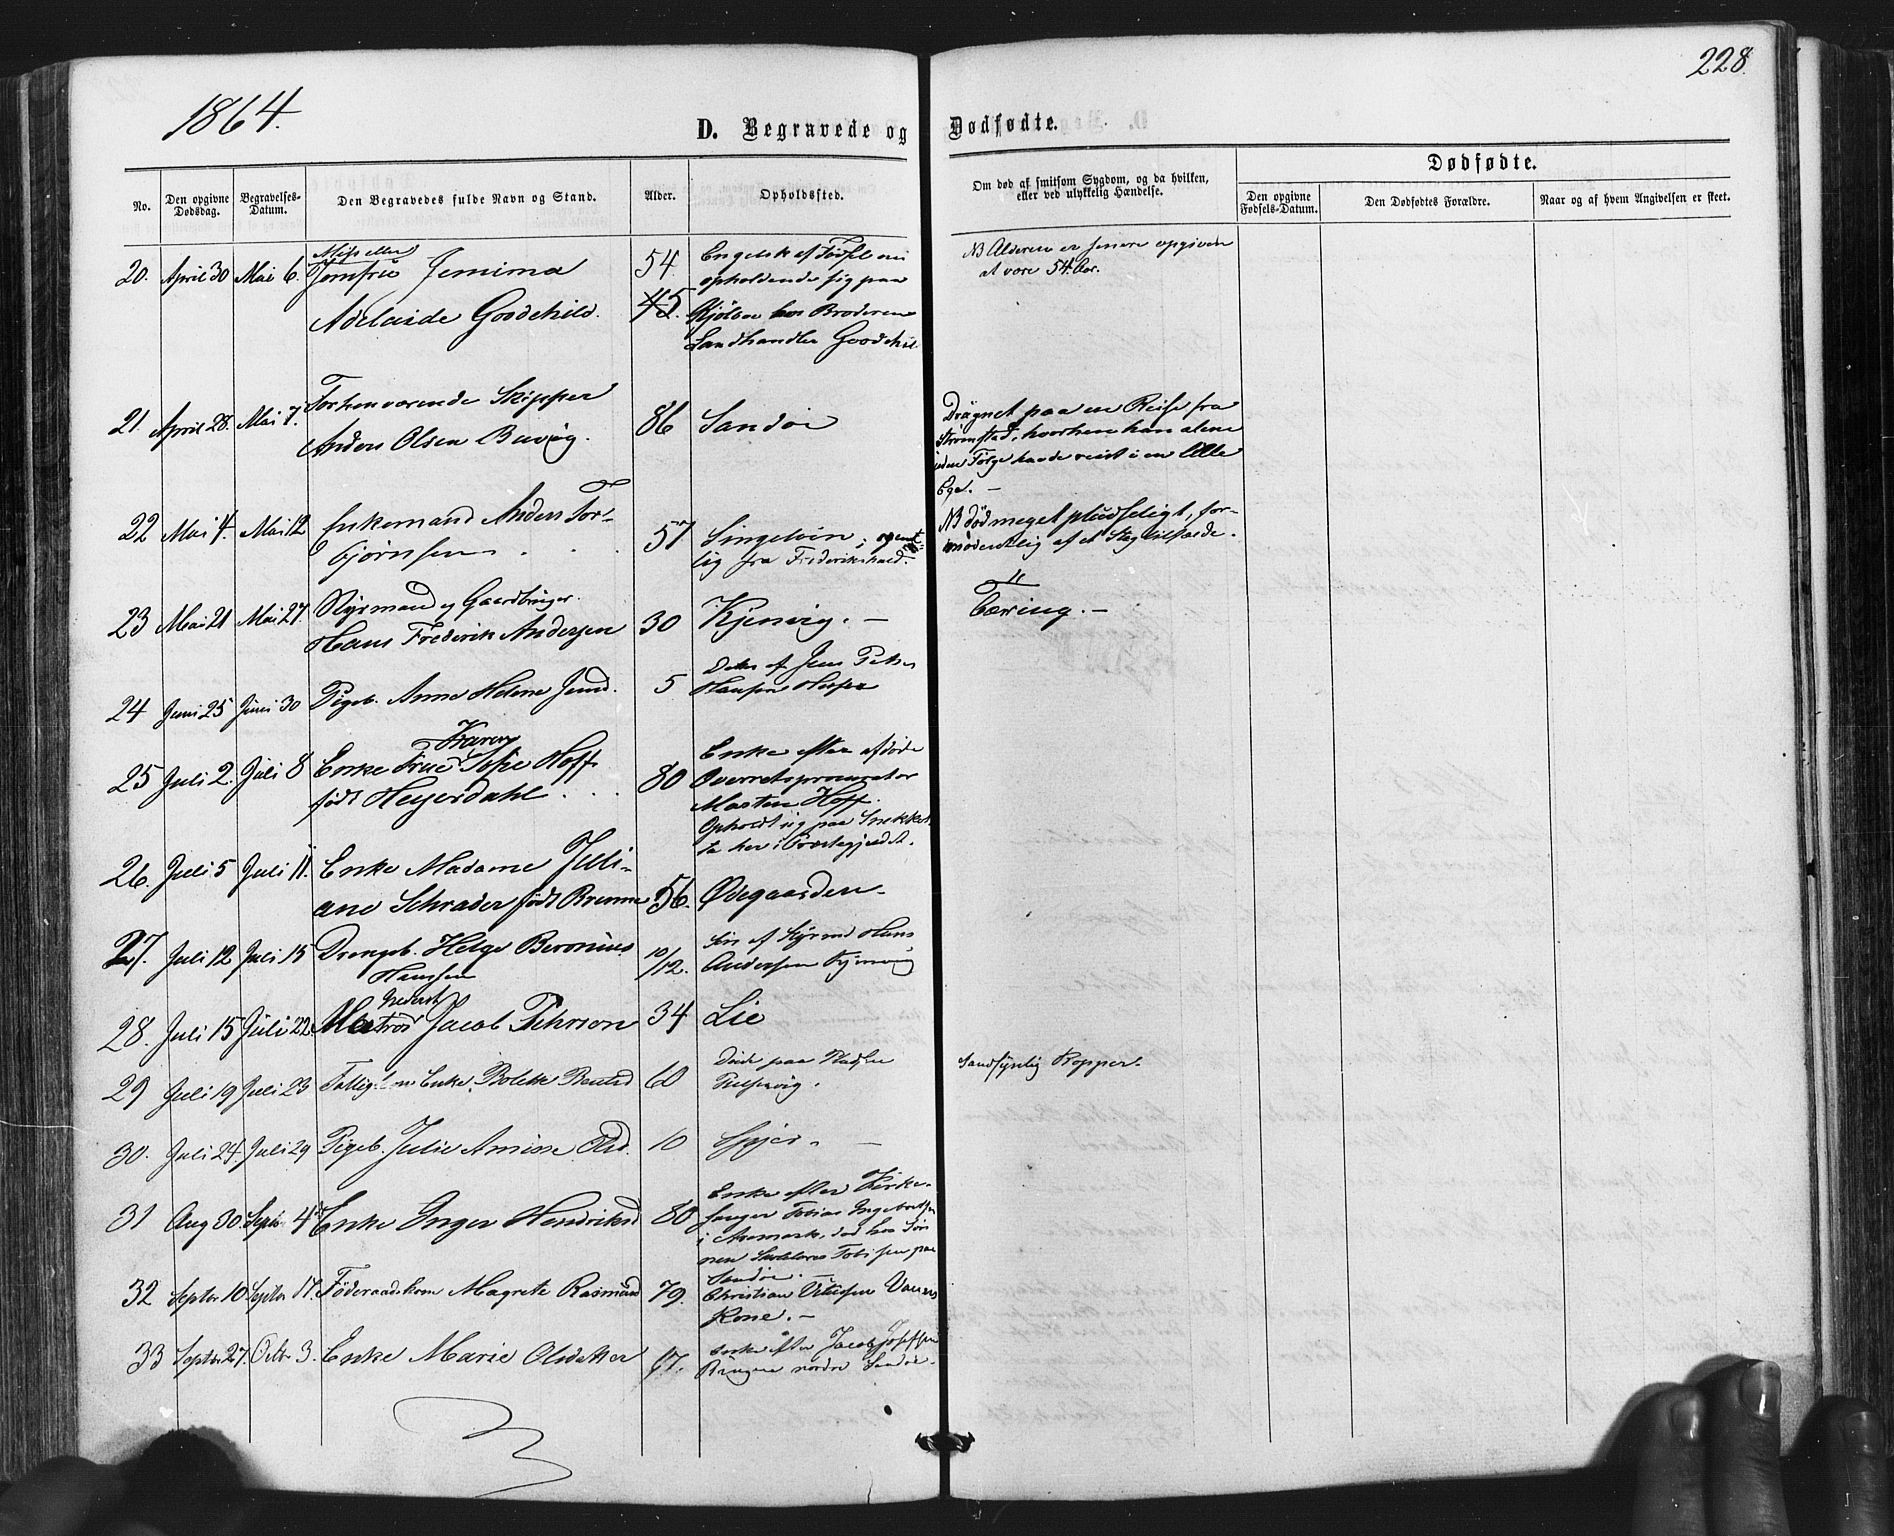 228.
1864.
D. Begravede og Dødfødte.
Dødfødte.
No.
Den opgivne Dødsdag.
Begravelses-Datum.
Den Begravedes fulde Navn og Stand.
Alder.
Opholdssted.
Om død af smitsom Sygdom, og da hvilken, eller ved ulykkelig Hændelse.
Den opgivne Fødsels-Datum.
Den Dødfødtes Forældre.
Naar og af hvem Angivelsen er skeet.
20. April 30 Mai 6. Miss eller Jomfru Jemima
Adelaide Goodchild.
54.
45.
Engelsk af Fødsel
opholdende sig paa
Kjølen hos Broderen
Landhandler Goodchil
NB Alderen er senere opgiven
at være 54 Aar.
21. April 28. Mai 7. Forhenværende Skipper
Anders Olsen
86 Sandøe
Drugnet paa en Reise fra
Strømstad, hvorhen han alene
uden Følge havde reist i en lille
Ege. –
22 Mai 4. Mai 12 Enkemand Anders Tor-
bjørnsen
57 Singeløen; egent-
lig fra Frederikshald.
NB død meget pludseligt, for-
modentlig af et Slagtilfælde.
23 Mai 21 Mai 27. Styrmand og Gaardbruger
Hans Frederik Andersen
30 Kjenvig. –
Tæring. –
24 Juni 25 Juni 30 Pigeb. Anne Helene Jensd.
5
Datter af Jens Peter
Hansen
25 Juli 2. Juli 8 Enke Frue Karen Sofie Hoff
født Heyerdahl
80
Enke efter afdøde
Overretsprocurator
Morten Hoff.
Opholdt sig paa Snekkes-
ta her i Præstegjeldet.
26. Juli 5 Juli 11. Enke Madame Juli-
ane Schrader født
56. Ødegaarden
27. Juli 12 Juli 15 Drengeb. Helge Beronius
Hansen
10/12.
Søn af Styrmd Hans
Andersen Kjenvig
28. Juli 15 Juli 22. Matros Jacob Pehrson
34 Lie
29 Juli 19 Juli 23 Fattiglem Enke Bolette
60
Døde paa
Sandsynlig Kopper.
30. Juli 24. Juli 29 Pigeb. Julie Olsd.
10
31 Aug 30. Septr 4 Enke Inger Hendriksd
80
Enke efter Kirke-
sanger Tobias Ingebretsen
i Aremark, død hos Søn-
nen Tobisen paa
Sandøe. –
32 Septbr 10 Septbr 17. Føderaadskone Magrete Rasmusd
79.
Christian
Kone. –
33 Septbr 27. Octr 3. Enke Marie Olsdatter
67.
Enke efter Jacob Josephsen
nordre Sandøe.